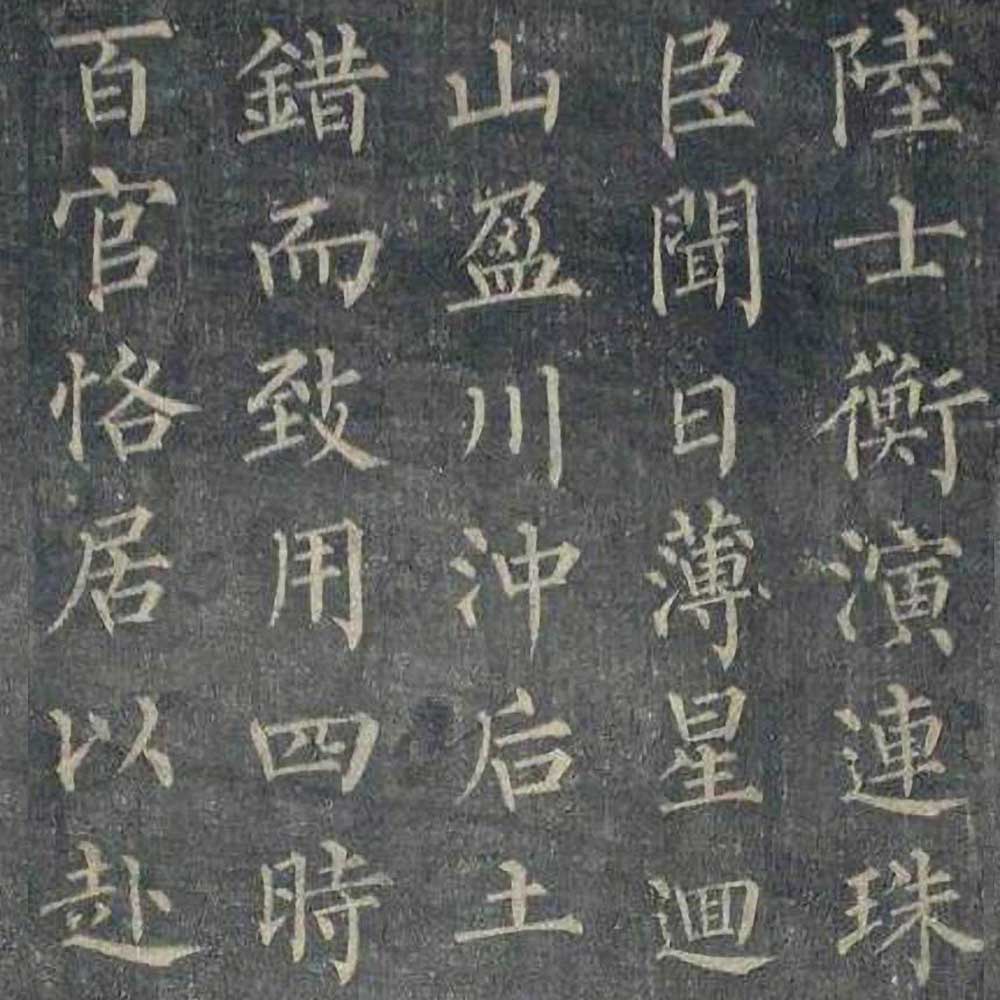 陸士衡演連珠
臣聞日薄星迴
山盈川沖后土
錯而致用四時
百官恪居以赴